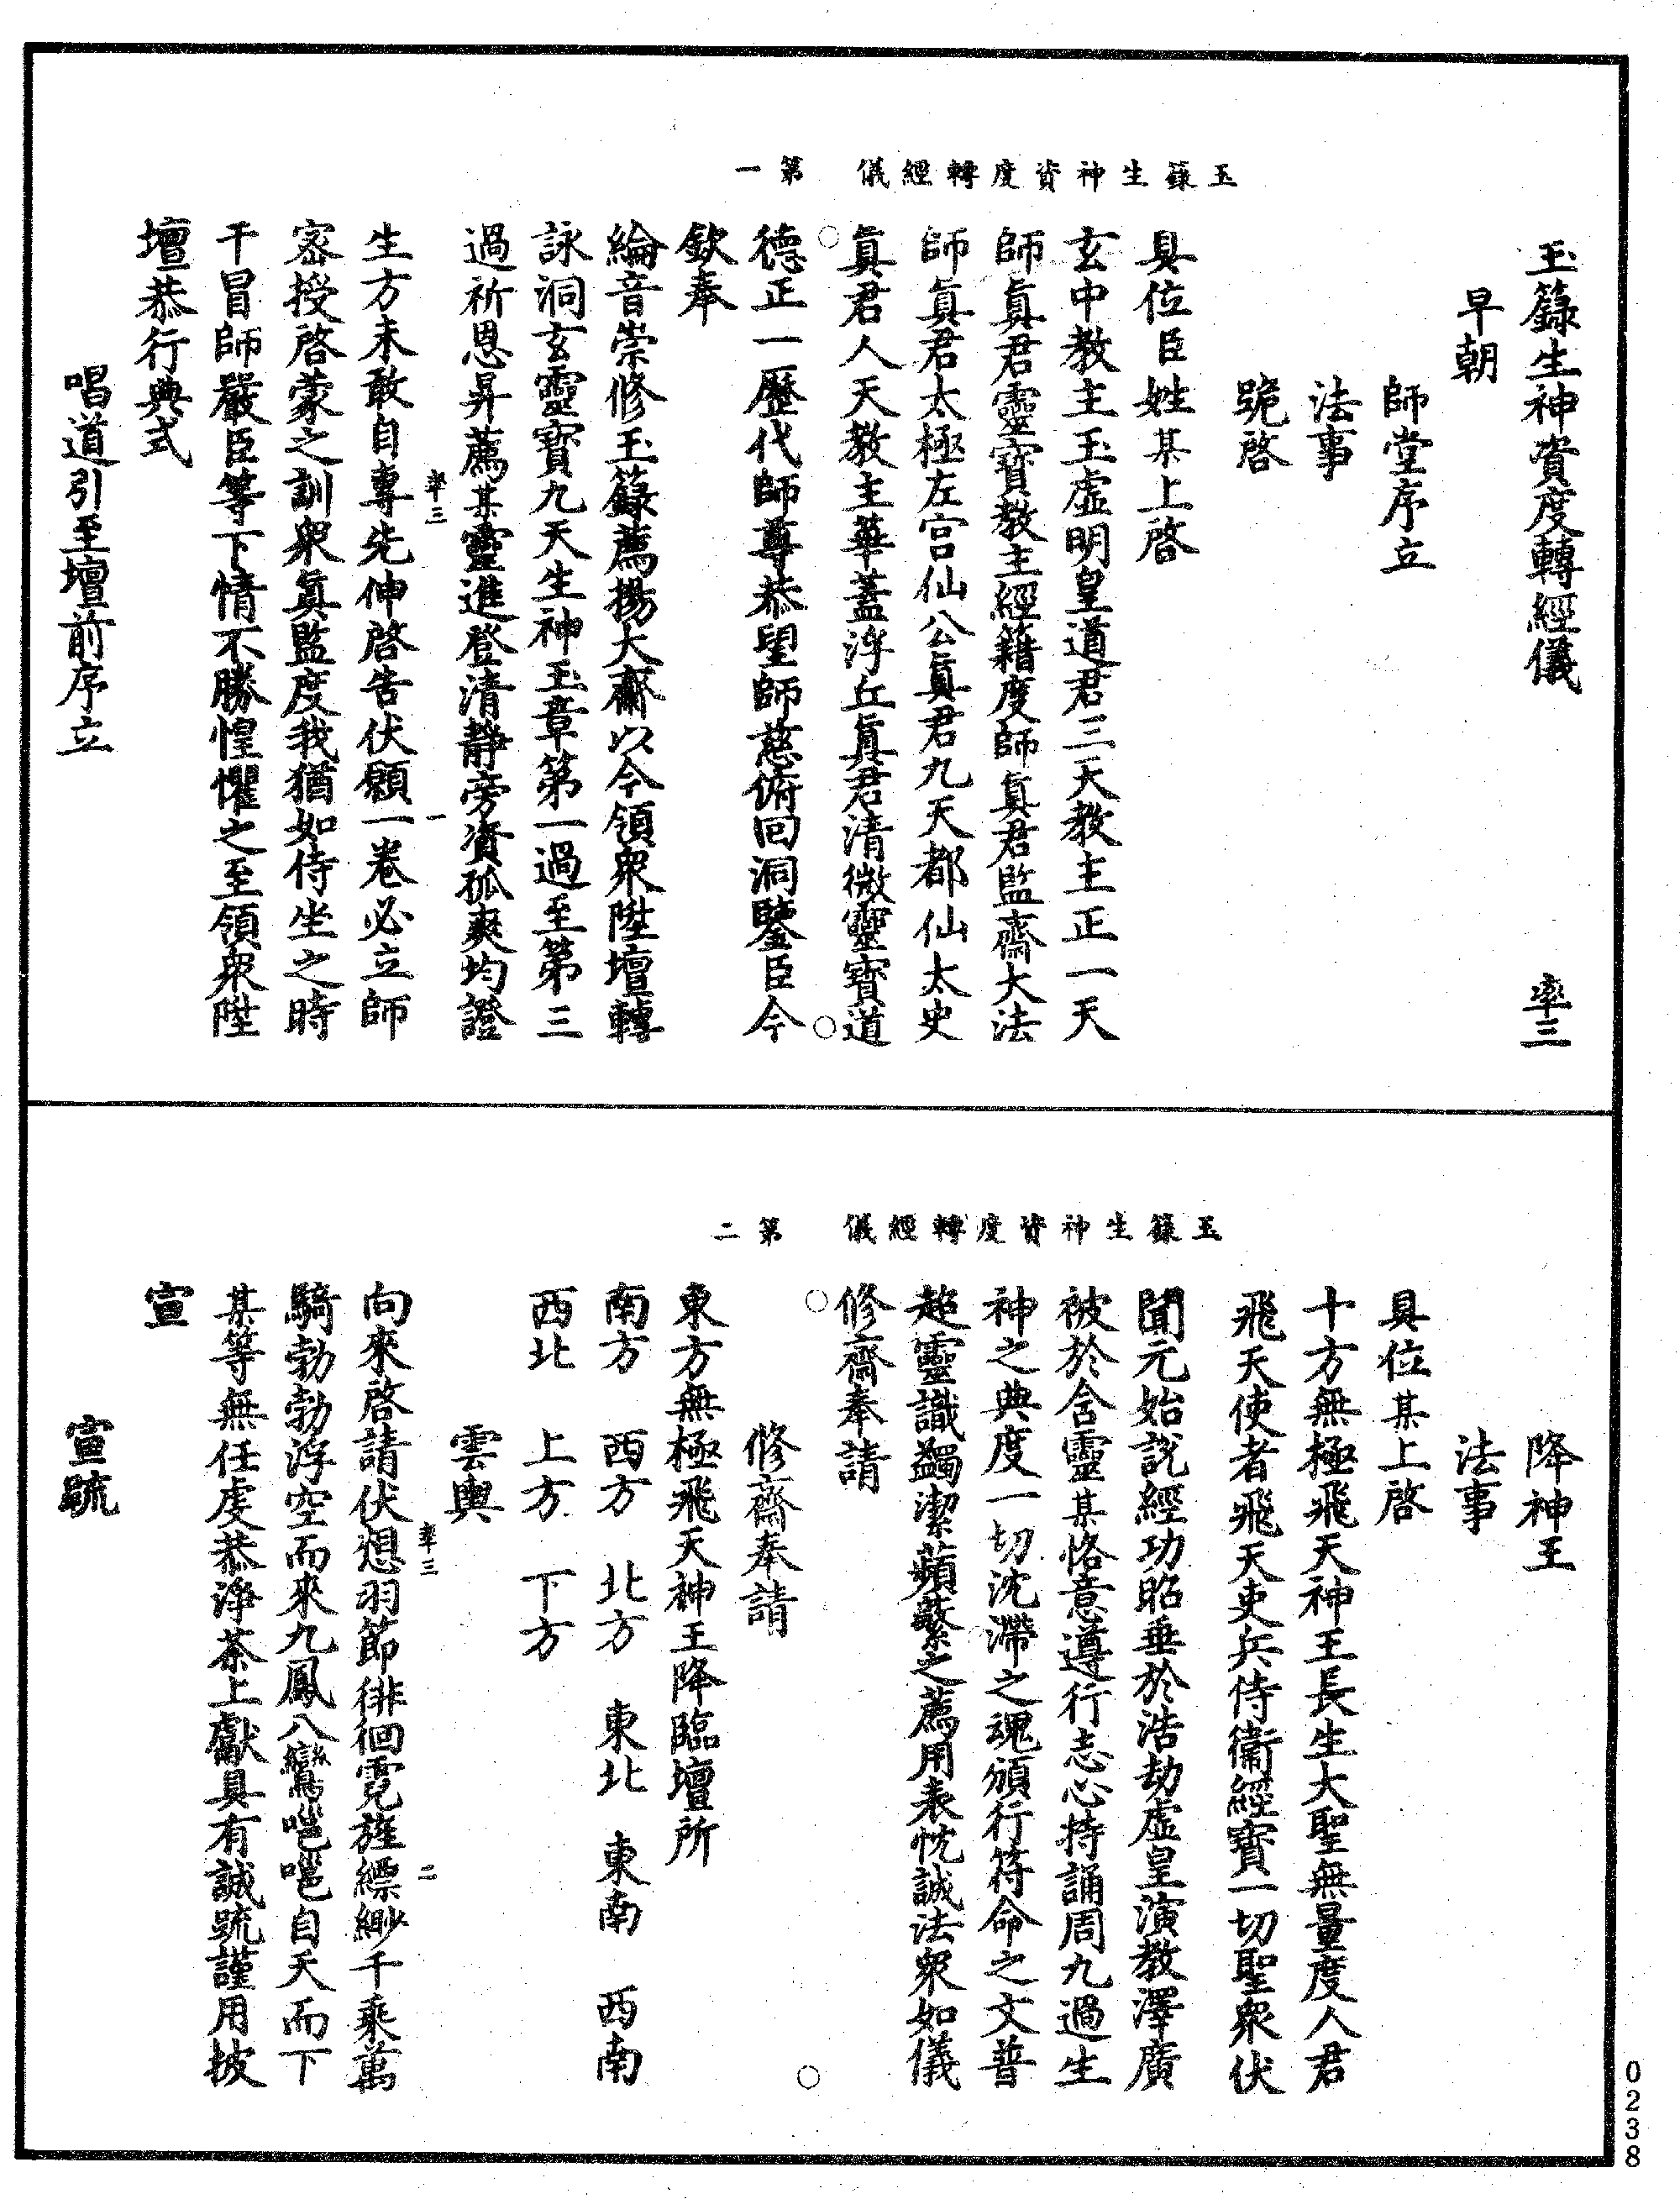 玉籙生神資度轉經儀　第一
玉籙生神資度轉經儀　率三
早朝
師堂序立
法事
跪啓
具位臣姓某上啓
玄中教主玉虛明皇道君三天教主正一天
師眞君靈寶教主經籍度師眞君監齋大法
師眞君太極左宮仙公眞君九天都仙太史
眞君人天教主華蓋浮丘眞君清微靈寶道
德正一歷代師尊恭望師慈俯回洞鑒臣今
欽奉
綸音崇修玉籙薦揚大齋以今領衆陞壇轉
詠洞玄靈寶九天生神玉章第一過至第三
過祈恩昇薦某靈進登清靜旁資孤爽均證
率三　一
生方未敢自專先伸啓告伏願一卷必立師
密授啓蒙之訓衆眞監度我猶如侍坐之時
干冒師嚴臣等下情不勝惶懼之至領衆陞
壇恭行典式
唱道引至壇前序立
玉籙生神資度轉經儀　第二
降神王
法事
具位某上啓
十方無極飛天神王長生大聖無量度人君
飛天使者飛天吏兵侍衞經寶一切聖衆伏
聞元始説經功昭垂於浩劫虛皇演教澤廣
被於含靈某恪意遵行志心持誦周九過生
神之典度一切沈滯之魂頒行符命之文普
超靈識蠲潔蘋蘩之薦用表忱誠法衆如儀
修齋奉請
修齋奉請
東方無極飛天神王降臨壇所
南方　西方　北方　東北　東南　西南
西北　上方　下方
雲輿
率三　二
向來啓請伏想羽節徘徊霓旌縹緲千乘萬
騎勃勃浮空而來九鳳八鸞嗈嗈自天而下
某等無任虔恭淨茶上獻具有誠䟽謹用披
宣
宣䟽
0238